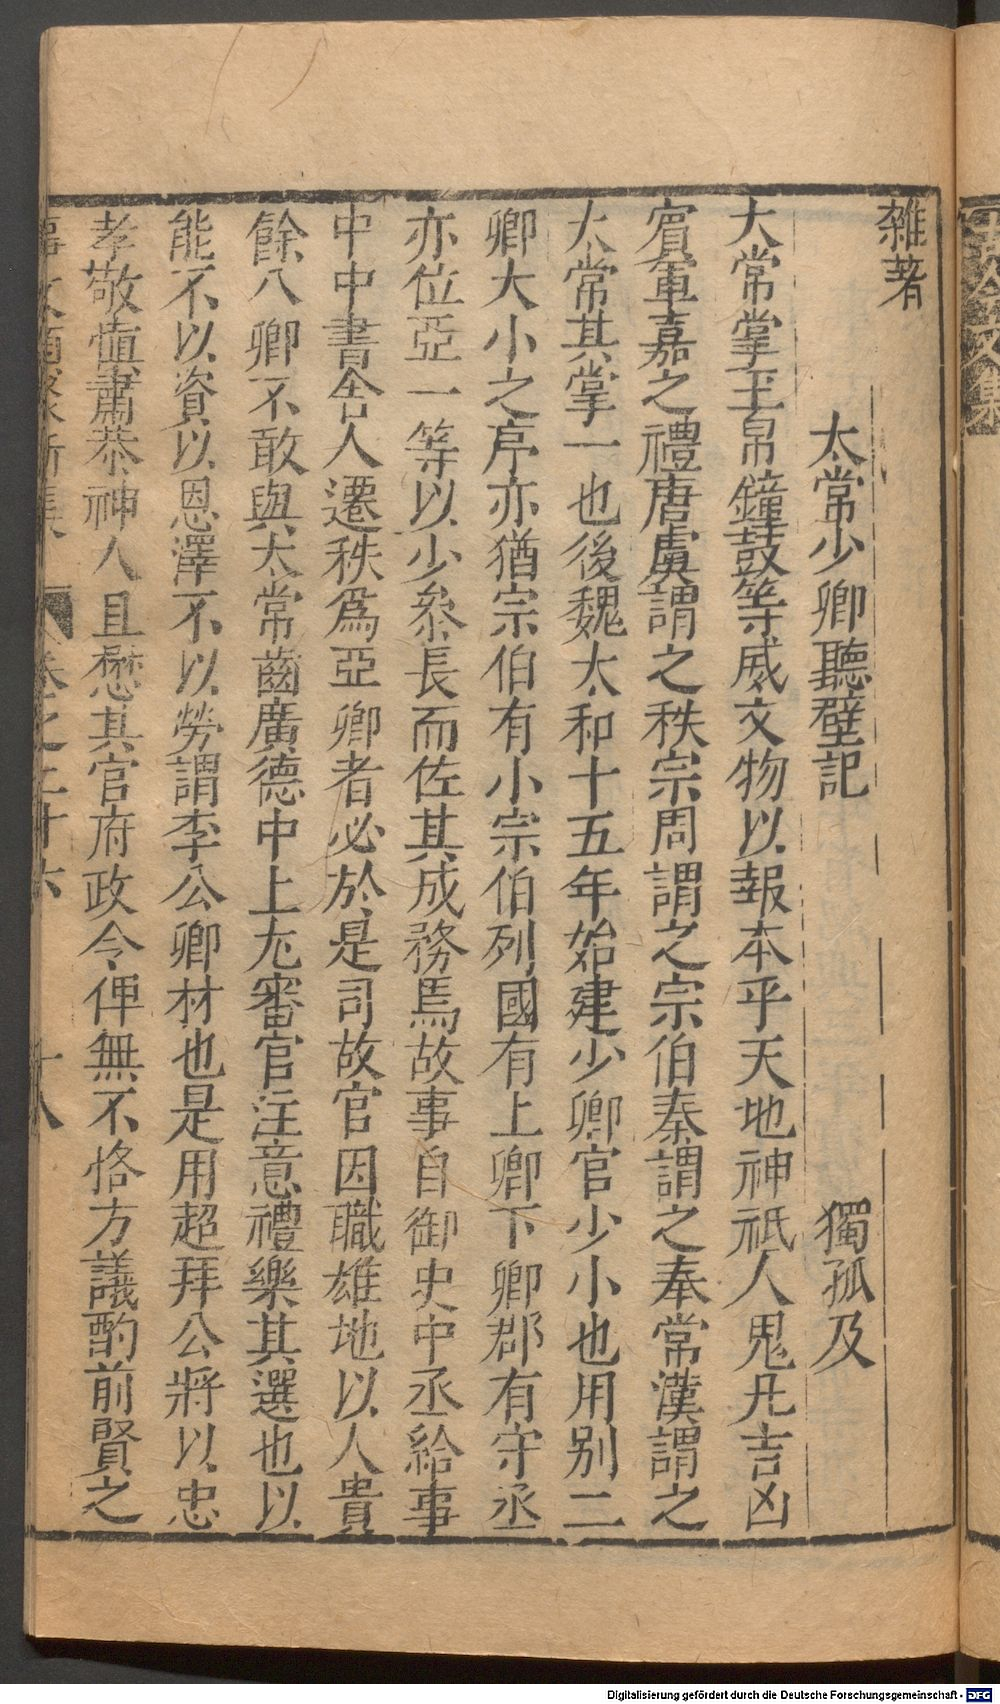 雜著
太常少卿聽壁記　獨孤及
大常掌玉帛鐘鼓等威文物以報本乎天地神祇人鬼凡吉凶
賓軍嘉之禮唐虞謂之秩宗周謂之宗伯秦謂之奉常漢謂之
太常其掌一也後魏太和十五年始建少卿官少小也用别二
卿大小之序亦猶宗伯有小宗伯列國有上卿下卿郡有守丞
亦位亞一等以少叅長而佐其成務焉故事自御史中丞給事
中中書舍人遷秩爲亞卿者必於是司故官因職雄地以人貴
餘八卿不敢與太常齒廣德中上尤審官注意禮樂其選也以
能不以資以恩澤不以勞謂李公卿材也是用超拜公將以忠
孝敬慎肅恭神人且懋其官府政令俾無不恪方議酌前賢之
卷之二十六　十八
Digitalisierung gefördert durch die Deutsche Forschungsgemeinschaft - DFG